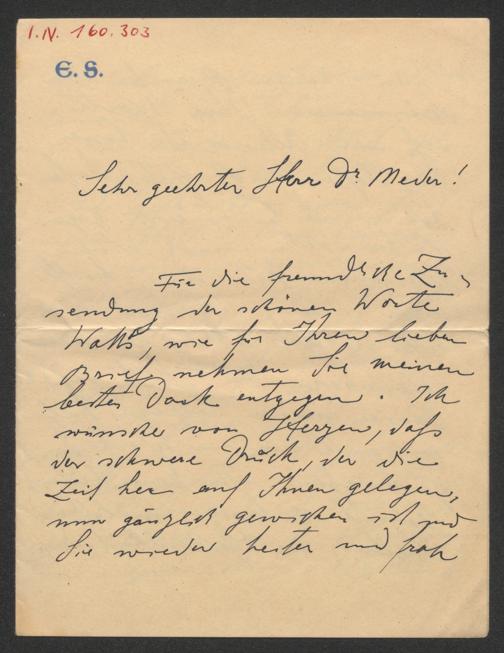 I.N. 160.303
E. S.
Sehr geehrter Herr Dr. Meder!
Für die freundliche Zu-
sendung der schönen Worte
Watts, wie für Ihren lieben
Brief nehmen Sie meinen
besten Dank entgegen. Ich
wünsche von Herzen, daß
der schwere Druck, der die
Zeit her auf Ihnen gelegen,
nun gänzlich gewichen ist und
Sie wieder heiter und froh